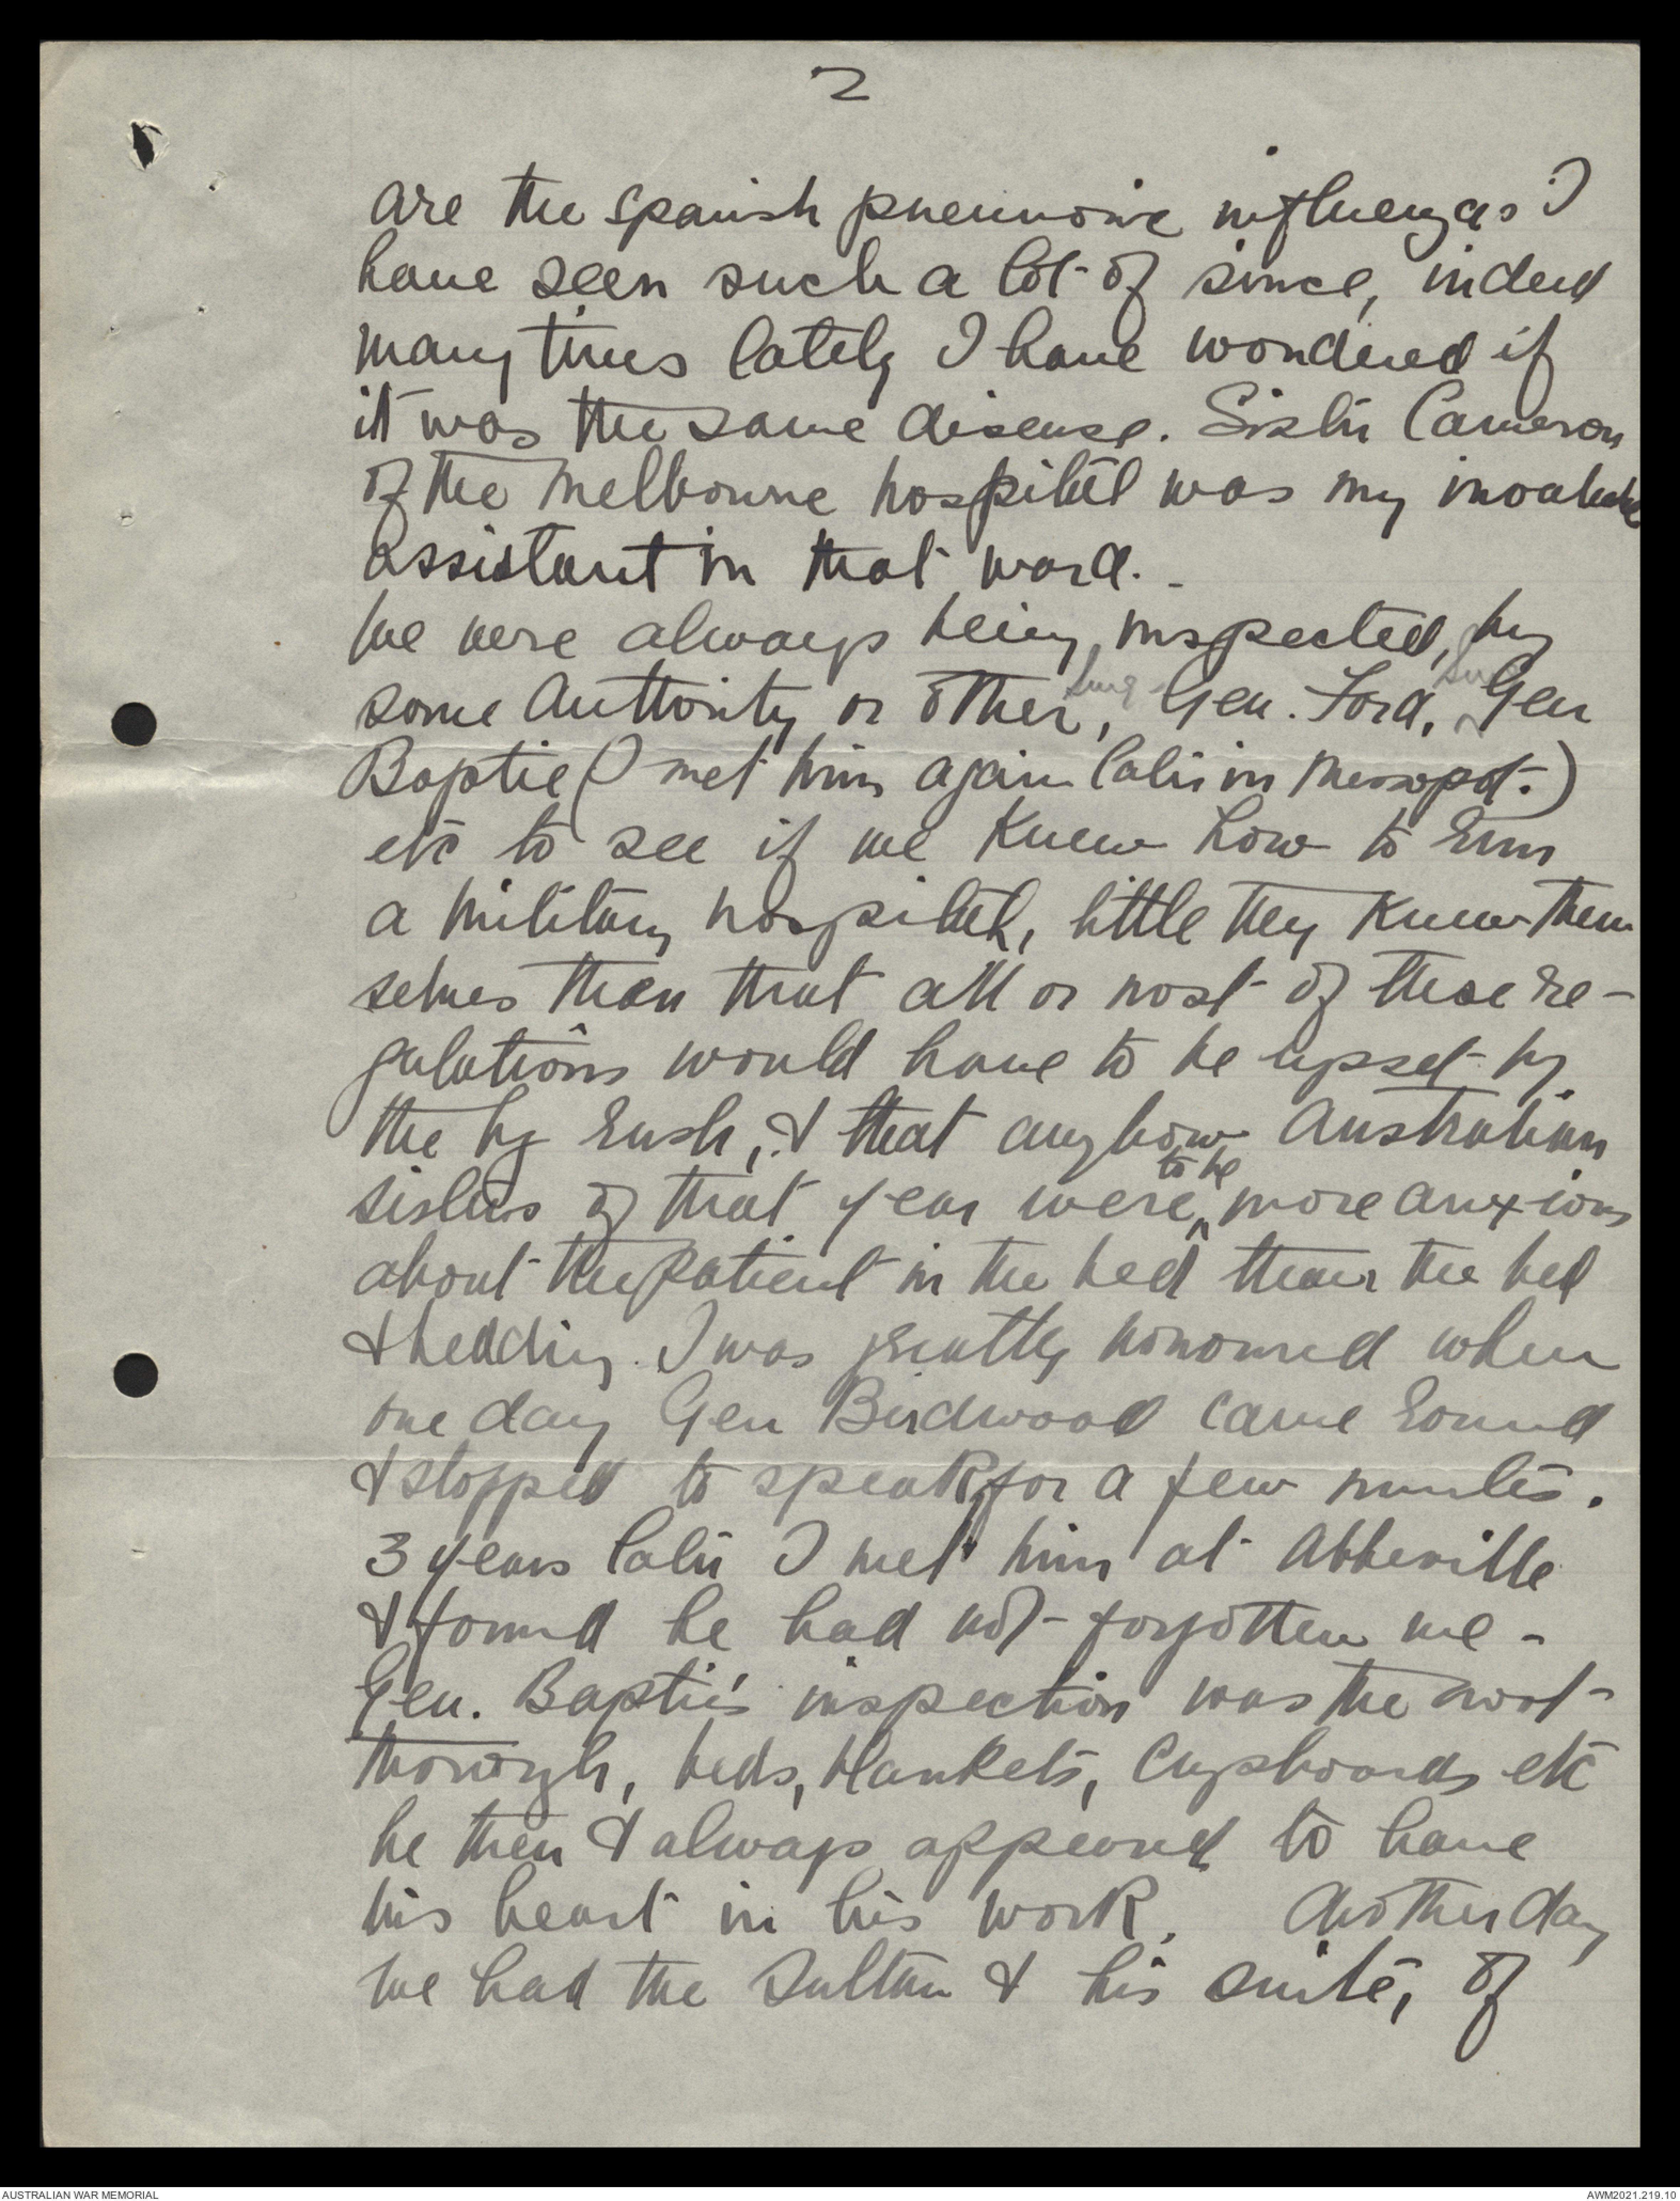 2
are the Spanish pneumonic influenzas I
have seen such a lot of since, indeed
many times lately I have wondered if
it was the same disease. Sister Cameron
of the Melbourne hospital was my
assistant in that ward. -
We were always being inspected, by
some Authority or other, Surg - Gen. Ford, Sur Gen
Baptie (I met him again later in Mesopot.)
etc to see if we knew how to run
a military hospital, little they knew them
selves then that all or most of these re-
gulations would have to be upset by
the big rush, & that anyhow Australian
sisters of that year were to be more anxious
about the patient in the bed than the bed
& bedding. I was greatly honoured when
one day Gen Birdwood came round
& stopped to speak for a few minutes.
3 years later I met him at Abbeville
& found he had not forgotten me -
Gen. Baptie's inspection was the most
thorough, beds, blankets, cupboards etc
he then & always appeared to have
his heart in his work. Another day
we had the Sultan & his suite, of
AUSTRALIAN WAR MEMORIAL
AWM2021.219.10